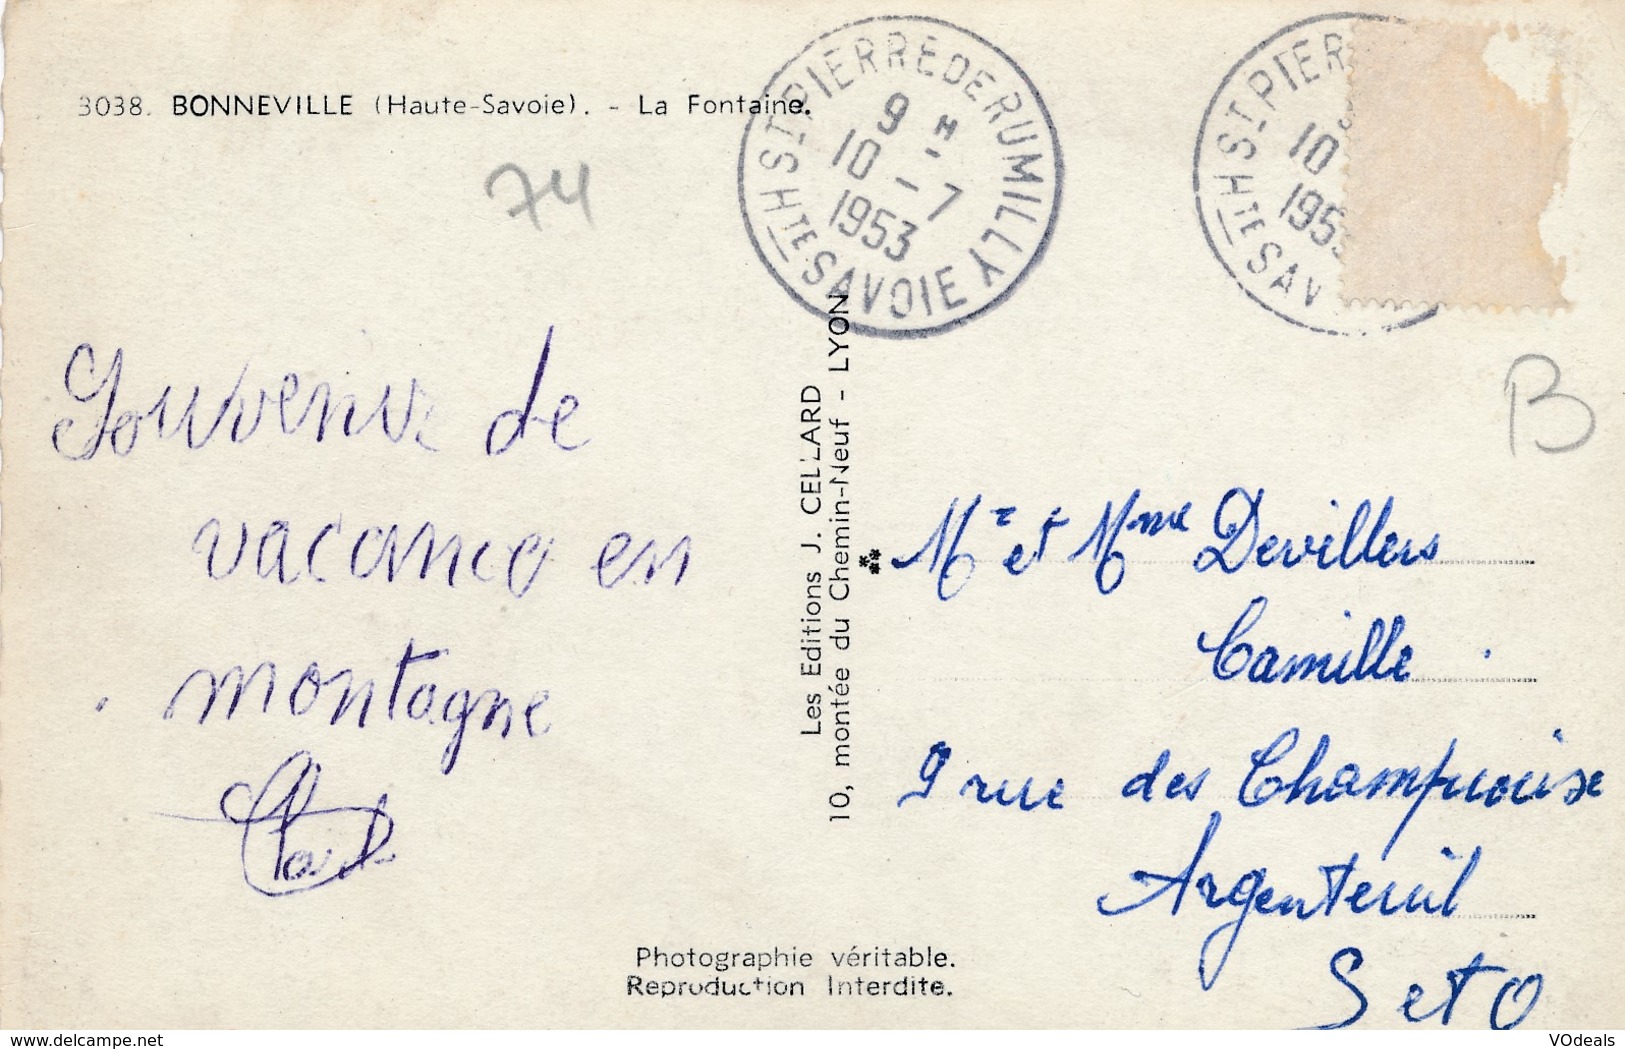 3038. BONNEVILLE (Haute-Savoie). - La Fontaine.
74
ST PIERRE DE RUMILLY
9 H
10 - 7
1953
HTE SAVOIE
ST PIER
10
195
HTE SAV
B
Souvenir de
vacance en
montagne
Les Editions J. CELLARD
10, montée du Chemin-Neuf - LYON
Mr et Mme Devillers
Camille
9 rue des
Argenteuil
S et O
Photographie véritable.
Reproduction Interdite.
www.delcampe.net
VOdeals